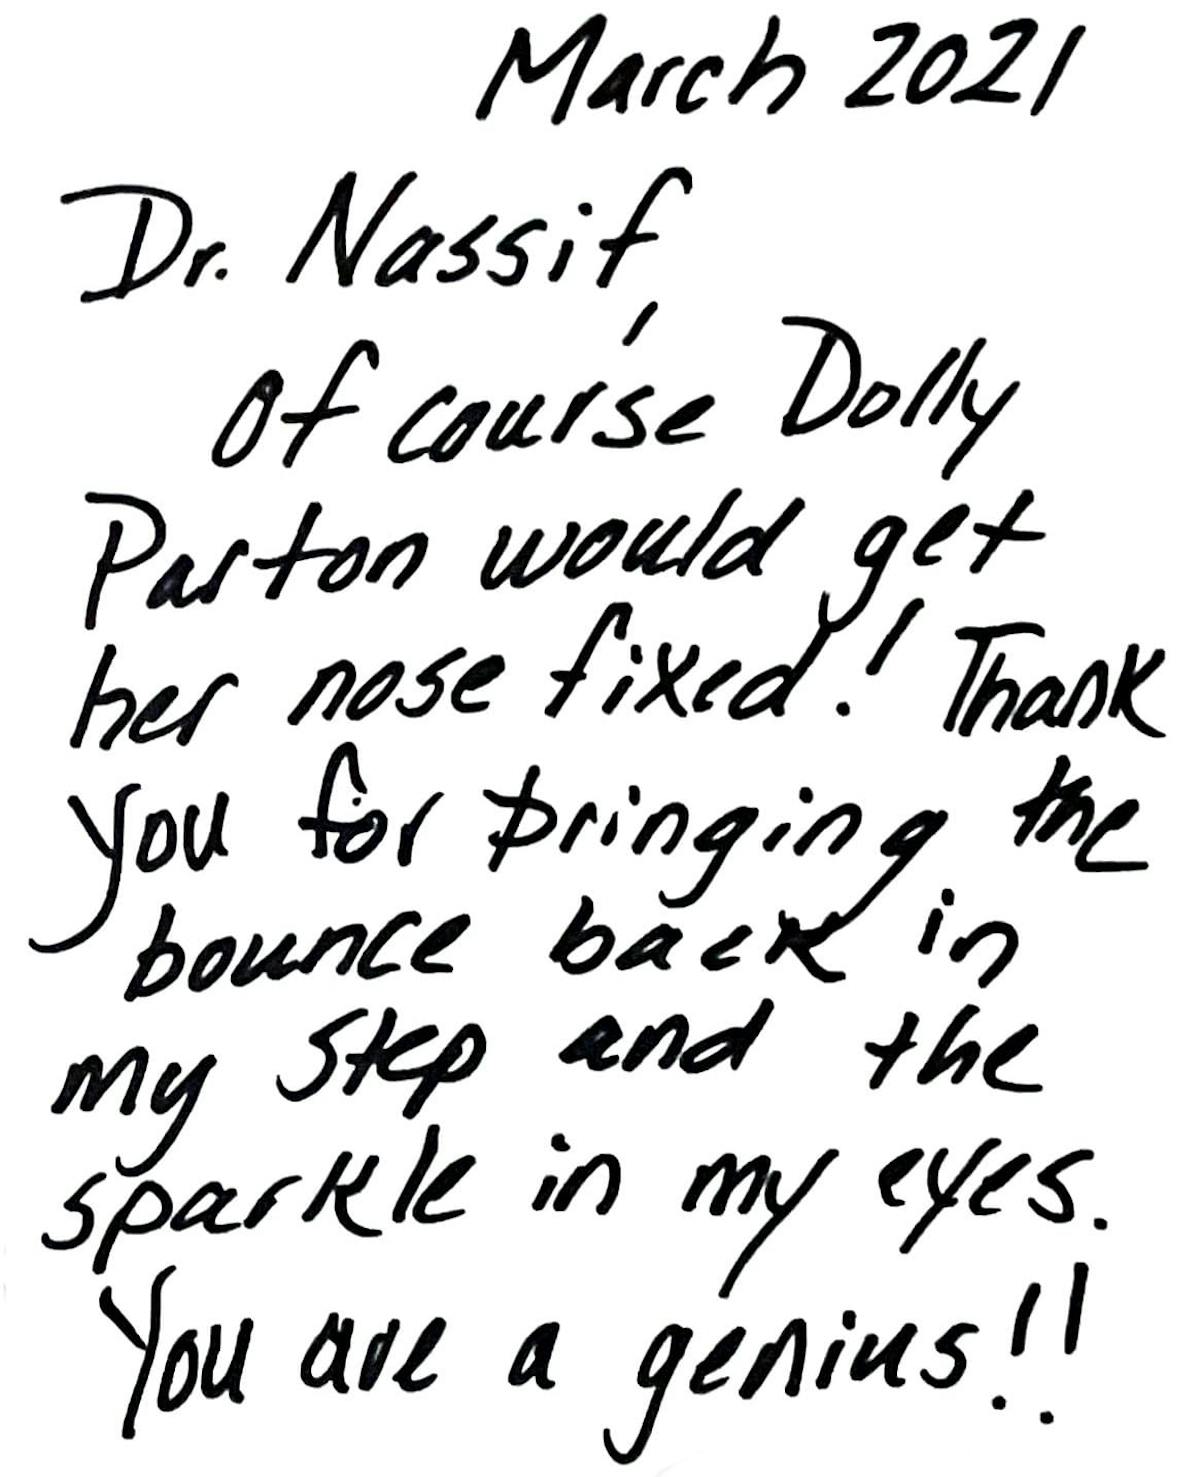 March 2021
Dr. Nassif,
Of course Dolly
Parton would get
her nose fixed! Thank
you for bringing the
bounce back in
my step and the
sparkle in my eyes.
You are a genius!!